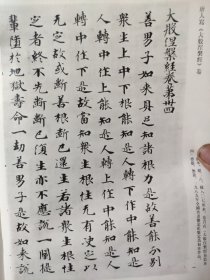 唐人写《大般涅槃经》卷
大般涅槃經卷第卅四
善男子如來具足知諸根力是故善能分別
衆生上中下根能知是人轉下作中能知是人
轉中作上能知是人轉上作中能知是人
轉中作下是故當知衆生根性无有決定以
无定故或斷善根斷已還生若諸衆生根性
定者終不先斷斷已復生亦不應說一闡提
輩墮於地獄壽命一劫善男子是故如來說